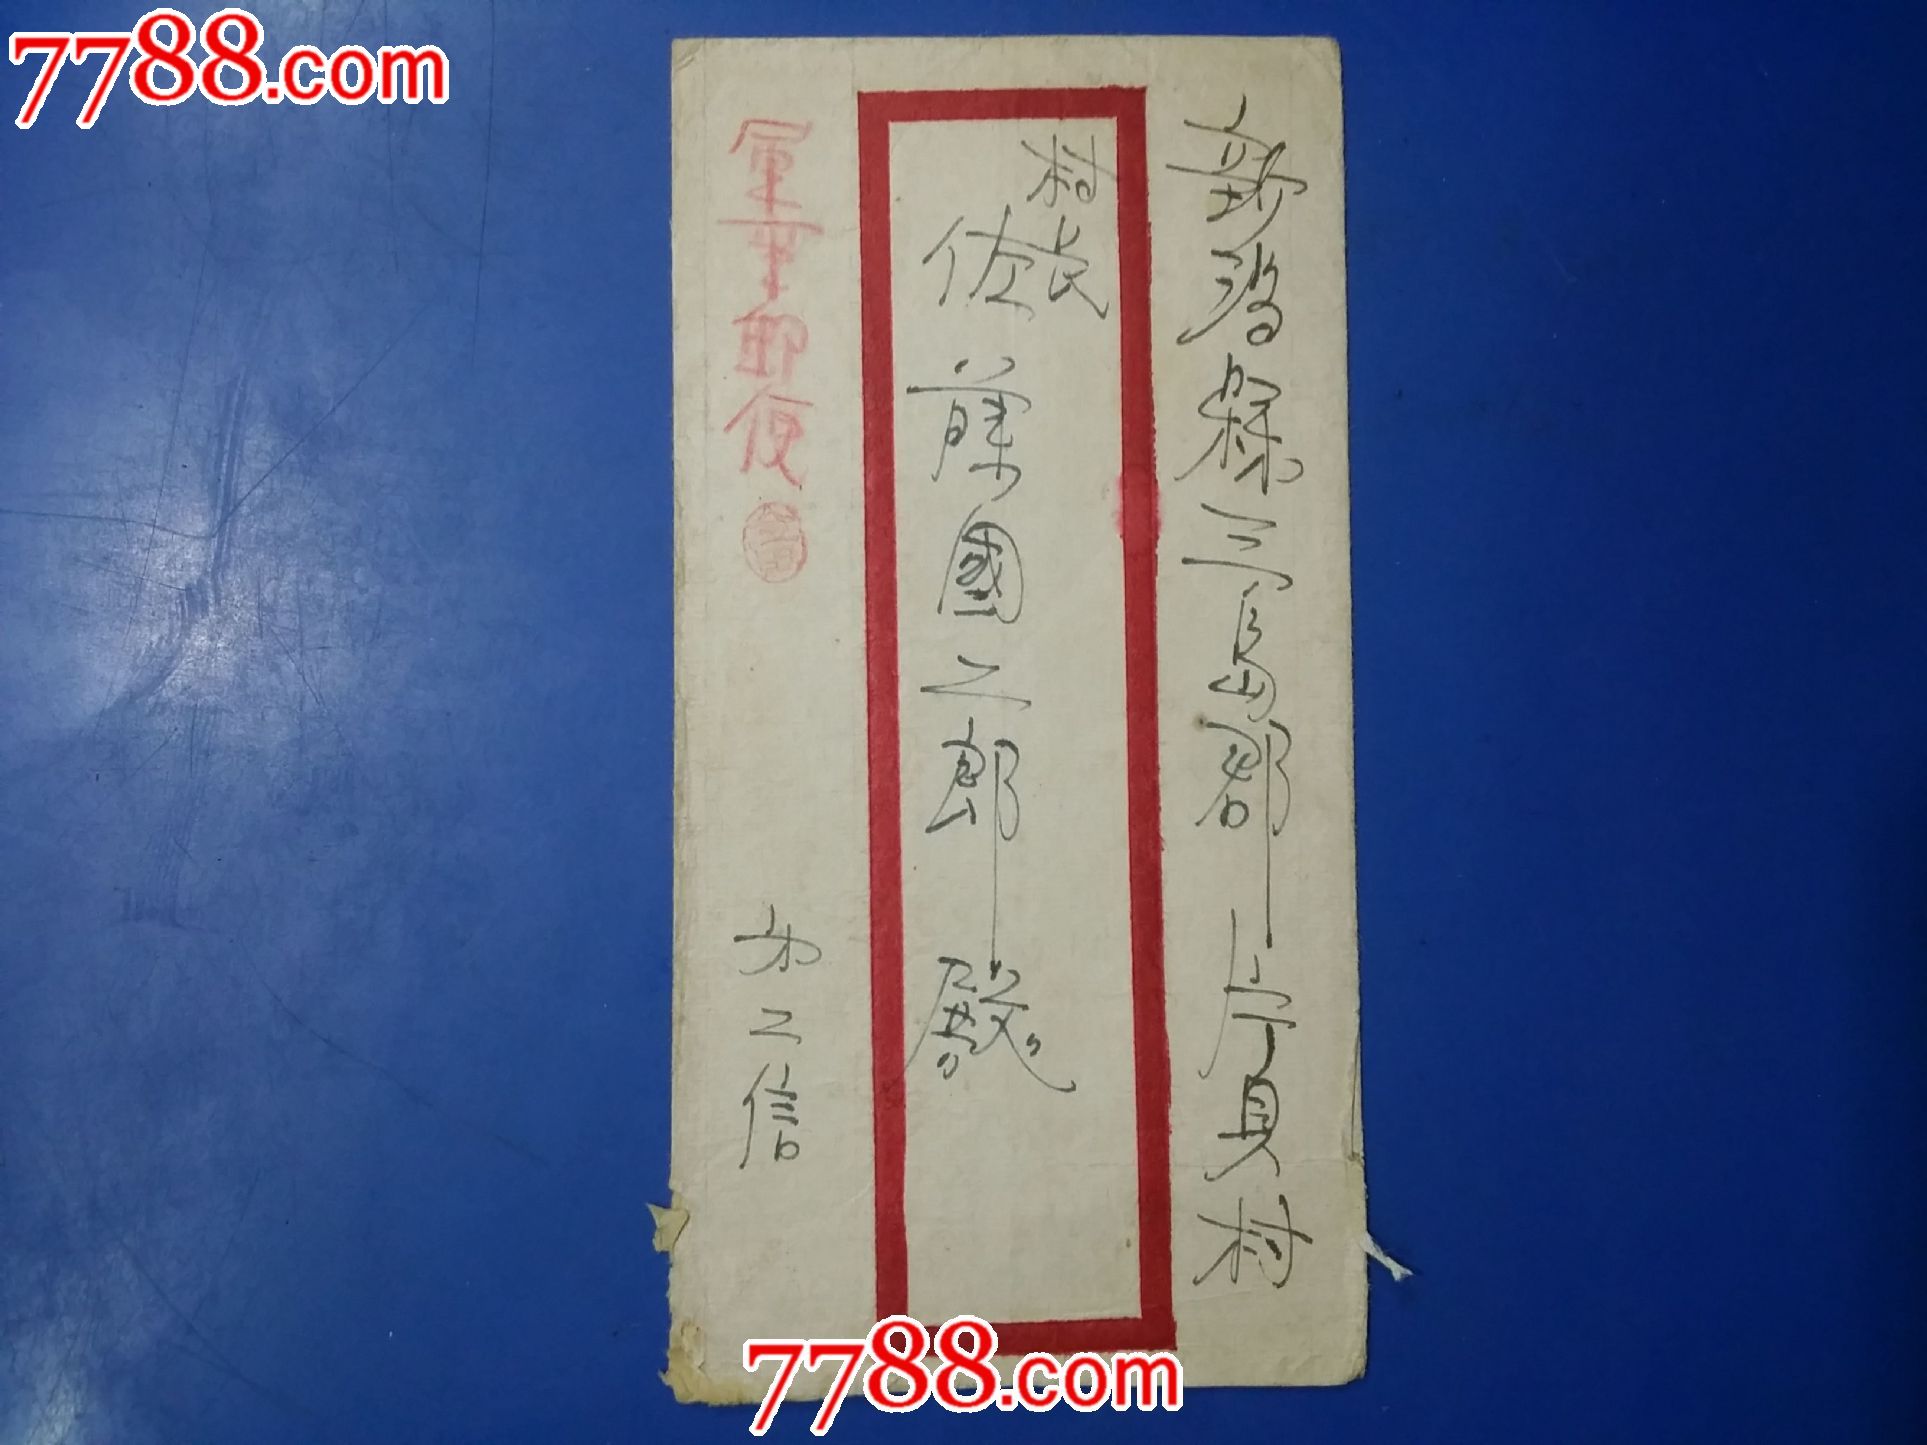 7788.com
新潟縣三島郡片貝村
村長
佐藤國之郎殿
軍事郵便
第二信
7788.com